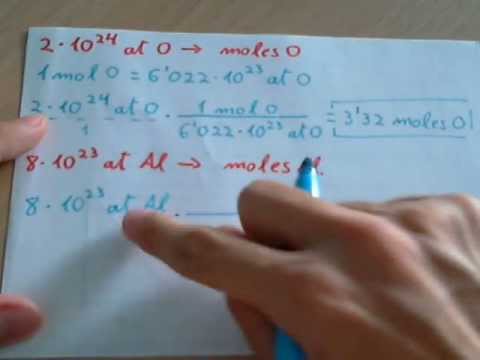 2·10²⁴ at O → moles O
1 mol O = 6'022·10²³ at O
2·10²⁴ at O · 1 mol O / 6'022·10²³ at O = 3'32 moles O
1
8·10²³ at Al → moles
8·10²³ at Al ·